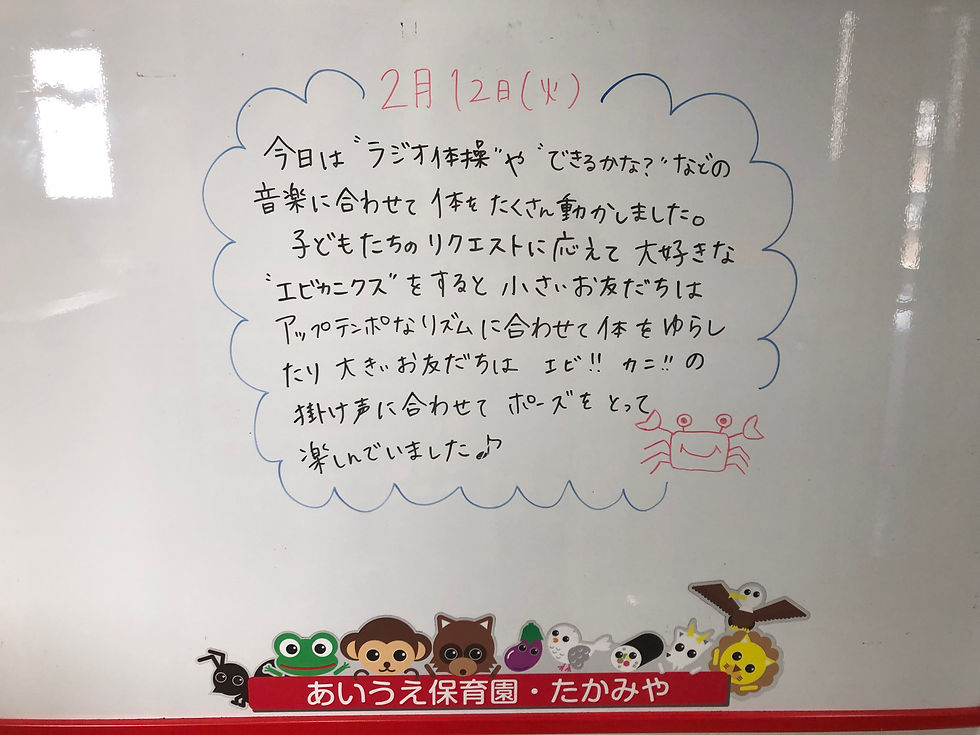 2月12日(火)
今日は"ラジオ体操"や"できるかな?"などの
音楽に合わせて体をたくさん動かしました。
子どもたちのリクエストに応えて大好きな
"エビカニクス"をすると小さいお友だちは
アップテンポなリズムに合わせて体をゆらし
たり大きいお友だちは エビ!! カニ!!の
掛け声に合わせてポーズをとって
楽しんでいました♪
あいうえ保育園・たかみや